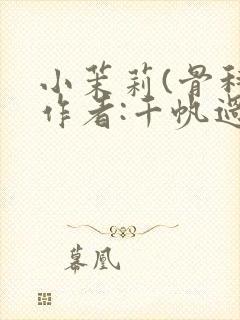 小茉莉(骨科
作者:千帆過
幕凰